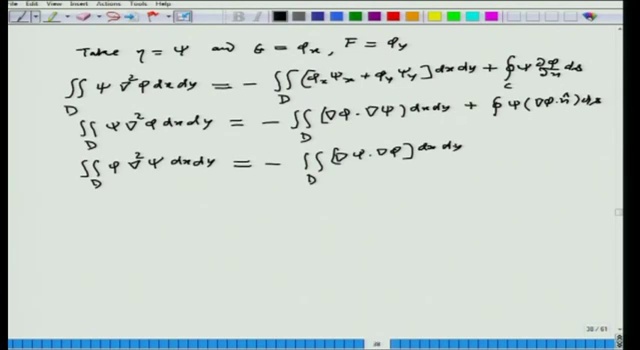 File Edit View Insert Actions Tools Help
Take η = Ψ and G = φₓ, F = φ_y
∬_D Ψ ∇²φ dxdy = - ∬_D [φₓΨₓ + φ_yΨ_y] dxdy + ∮_C Ψ ∂φ/∂n ds
∬_D Ψ ∇²φ dxdy = - ∬_D (∇φ · ∇Ψ) dxdy + ∮ Ψ (∇φ·n̂) ds
∬_D φ ∇²Ψ dxdy = - ∬_D [∇Ψ · ∇φ] dxdy
38 / 61
38